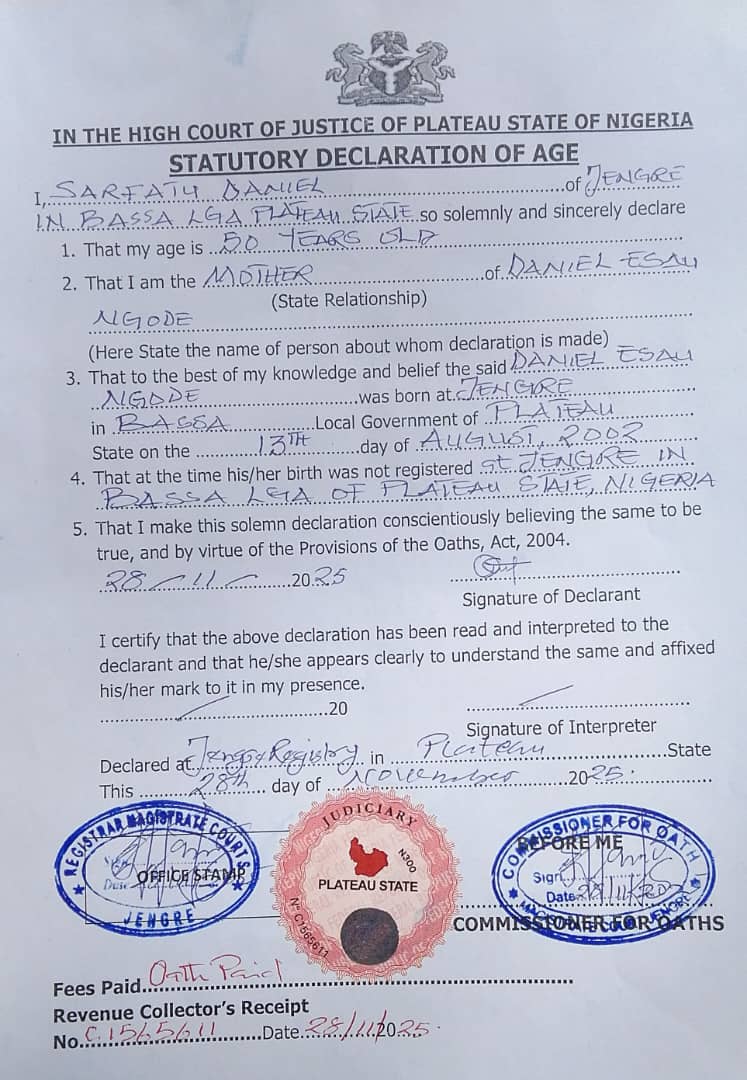 IN THE HIGH COURT OF JUSTICE OF PLATEAU STATE OF NIGERIA
STATUTORY DECLARATION OF AGE
I, SARFATU DANIEL of JENGRE
IN BASSA LGA PLATEAU STATE so solemnly and sincerely declare
1. That my age is 50 YEARS OLD
2. That I am the MOTHER of DANIEL ESAU
(State Relationship)
NGODE
(Here State the name of person about whom declaration is made)
3. That to the best of my knowledge and belief the said DANIEL ESAU
NGODE was born at JENGRE
in BASSA Local Government of PLATEAU
State on the 13TH day of AUGUST, 2002
4. That at the time his/her birth was not registered at JENGRE IN
BASSA LGA OF PLATEAU STATE, NIGERIA
5. That I make this solemn declaration conscientiously believing the same to be
true, and by virtue of the Provisions of the Oaths, Act, 2004.
28-11-2025
Signature of Declarant
I certify that the above declaration has been read and interpreted to the
declarant and that he/she appears clearly to understand the same and affixed
his/her mark to it in my presence.
20
Signature of Interpreter
Declared at Registry in Plateau State
This 28th day of November 2025.
REGISTRAR MAGISTRATE COURTS
OFFICE STAMP
JENGRE
JUDICIARY
N300
PLATEAU STATE
No C1565611
COMMISSIONER FOR OATH
BEFORE ME
Sign
Date 28/11/
COMMISSIONER FOR OATHS
Fees Paid Oath Paid
Revenue Collector's Receipt
No. C.1565611 Date 28/11/2025.